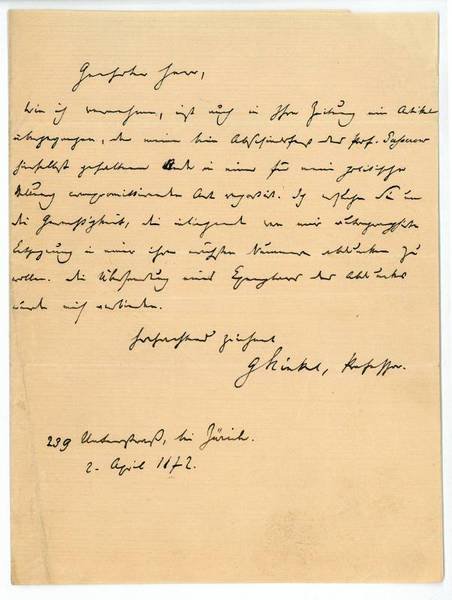 Geehrter Herr,
Wie ich vernehme, ist auch in Ihre Zeitung ein Artikel
übergegangen, der meine beim Abschiedsfest des Prof.
gehaltene Rede in einer für meine politische
Stellung compromittirenden Art. Ich ersuche Sie um
die Gerechtigkeit, die inliegend von mir
Entgegnung in einer Ihrer nächsten Nummern abdrucken zu
wollen. Die Übersendung eines Exemplares des Abdrucks
würde mich verbinden.
Hochachtend zeichnet
GKinkel, Professor.
239 Unterstraß, bei Zürich.
2. April 1872.